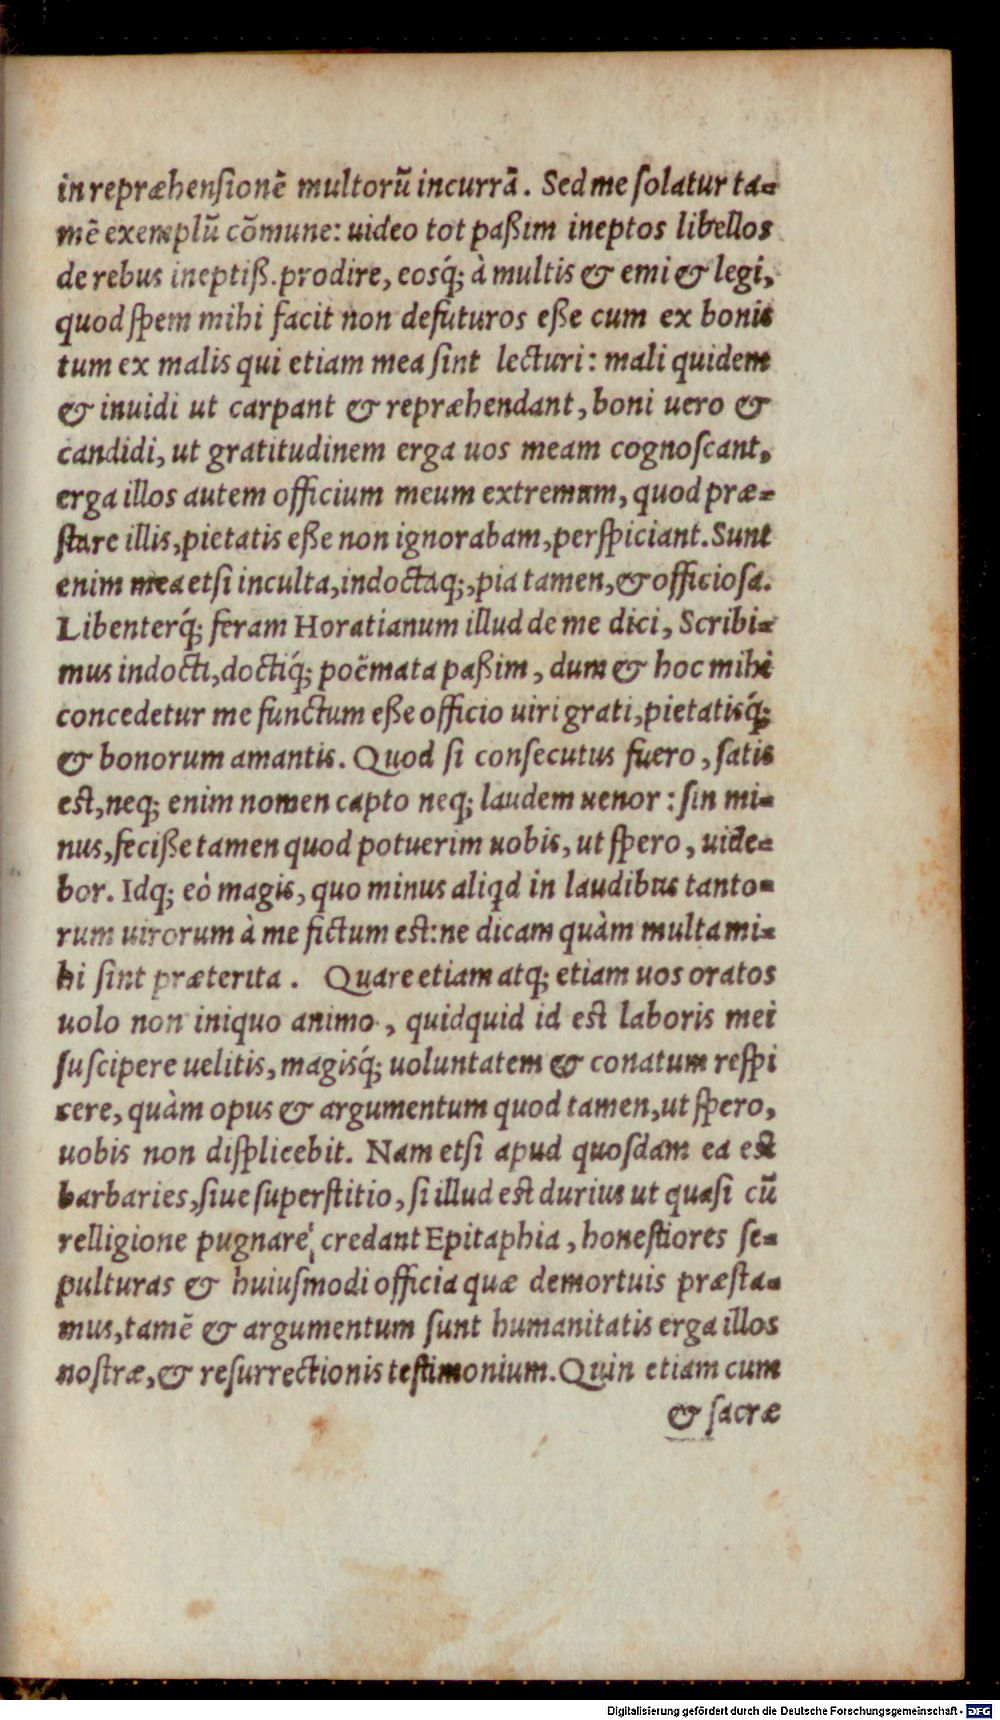 in repræhensionẽ multorũ incurrã. Sed me solatur ta-
mẽ exemplũ cõmune: uideo tot paßim ineptos libellos
de rebus ineptiß. prodire, eosq́; à multis & emi & legi,
quod spem mihi facit non defuturos eße cum ex bonis
tum ex malis qui etiam mea sint lecturi: mali quidem
& inuidi ut carpant & repræhendant, boni uero &
candidi, ut gratitudinem erga uos meam cognoscant,
erga illos autem officium meum extremum, quod præ-
stare illis, pietatis eße non ignorabam, perspiciant. Sunt
enim mea etsi inculta, indoctaq;, pia tamen, & officiosa.
Libenterq́; feram Horatianum illud de me dici, Scribi-
mus indocti, doctiq́; poëmata paßim, dum & hoc mihi
concedetur me functum eße officio uiri grati, pietatisq́;
& bonorum amantis. Quod si consecutus fuero, satis
est, neq; enim nomen capto neq; laudem uenor: sin mi-
nus, feciße tamen quod potuerim uobis, ut spero, uide-
bor. Idq; eò magis, quo minus aliqd in laudibus tanto-
rum uirorum à me fictum est: ne dicam quàm multa mi-
hi sint præterita. Quare etiam atq; etiam uos oratos
uolo non iniquo animo, quidquid id est laboris mei
suscipere uelitis, magisq́; uoluntatem & conatum respi
cere, quàm opus & argumentum quod tamen, ut spero,
uobis non displicebit. Nam etsi apud quosdam ea est
barbaries, siue superstitio, si illud est durius ut quasi cũ
relligione pugnare credant Epitaphia, honestiores se-
pulturas & huiusmodi officia quæ demortuis præsta-
mus, tamẽ & argumentum sunt humanitatis erga illos
nostræ, & resurrectionis testimonium. Quin etiam cum
& sacræ
Digitalisierung gefördert durch die Deutsche Forschungsgemeinschaft - DFG